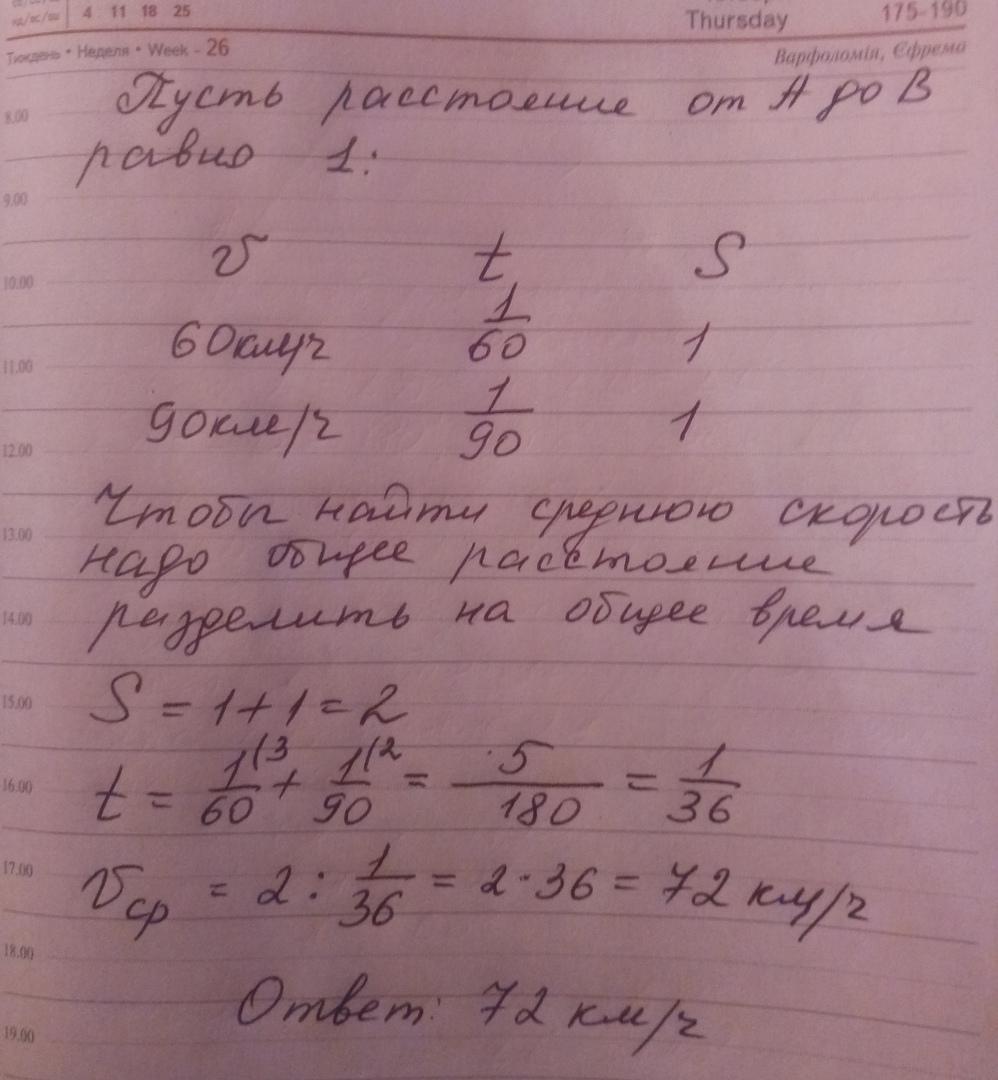 4 11 18 25
Thursday
175-190
Тиждень • Неделя • Week - 26
Варфоломія, Єфрема
8.00
Пусть расстояние от А до В
равно 1:
9.00
v t S
10.00
60км/ч 1/60 1
11.00
90км/ч 1/90 1
12.00
Чтобы найти среднюю скорость
13.00
надо общее расстояние
14.00
разделить на общее время
15.00
S = 1+1=2
16.00
t = 1(3/60 + 1(2/90 = 5/180 = 1/36
17.00
vср = 2 : 1/36 = 2·36 = 72 км/ч
18.00
Ответ: 72 км/ч
19.00